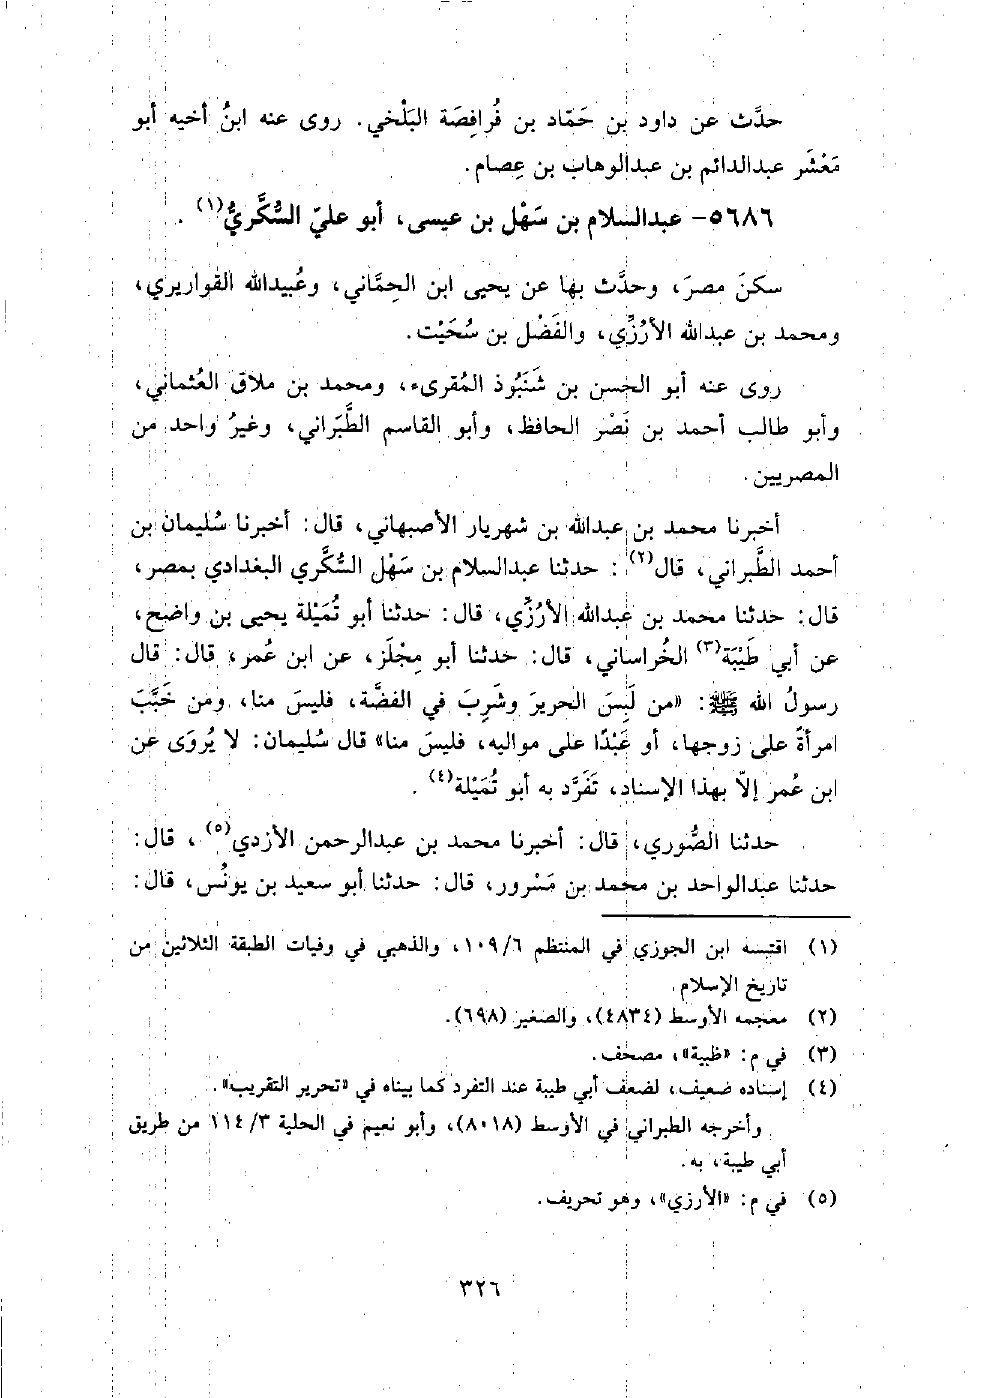 حدَّث عن داود بن حَمّاد بن فُرافِصَة البَلْخي. روى عنه ابنُ أخيه أبو
مَعْشَر عبدالدائم بن عبدالوهاب بن عِصام.
٥٦٨٦- عبدالسلام بن سَهْل بن عيسى، أبو عليّ السُّكَّريُّ(١).
سكنَ مصرَ، وحدَّث بها عن يحيى ابن الحِمَّاني، وعُبيدالله القواريري،
ومحمد بن عبدالله الأرُزِّي، والفَضْل بن سُخَيْت.
روى عنه أبو الحسن بن شَنَبُوذ المُقرىء، ومحمد بن ملاق العُثماني،
وأبو طالب أحمد بن نَصْر الحافظ، وأبو القاسم الطَّبَراني، وغيرُ واحد من
المصريين.
أخبرنا محمد بن عبدالله بن شهريار الأصبهاني، قال: أخبرنا سُليمان بن
أحمد الطَّبراني، قال(٢): حدثنا عبدالسلام بن سَهْل السُّكَّري البغدادي بمصر،
قال: حدثنا محمد بن عبدالله الأرُزِّي، قال: حدثنا أبو تُمَيْلة يحيى بن واضح،
عن أبي طَيْبَة(٣) الخُراساني، قال: حدثنا أبو مِجْلَز، عن ابن عُمر، قال: قال
رسولُ الله ﷺ: «من لَبِسَ الحريرَ وشَرِبَ في الفضَّة، فليسَ منا، ومن خَبَّبَ
امرأةً على زوجها، أو عَبْدًا على مواليه، فليسَ منا» قال سُليمان: لا يُروَى عن
ابن عُمر إلاّ بهذا الإسناد، تَفَرَّد به أبو تُمَيْلة(٤).
حدثنا الصُّوري، قال: أخبرنا محمد بن عبدالرحمن الأزدي(٥)، قال:
حدثنا عبدالواحد بن محمد بن مَسْرور، قال: حدثنا أبو سعيد بن يونُس، قال:
(١) اقتبسه ابن الجوزي في المنتظم ١٠٩/٦، والذهبي في وفيات الطبقة الثلاثين من
تاريخ الإسلام.
(٢) معجمه الأوسط (٤٨٣٤)، والصغير (٦٩٨).
(٣) في م: «ظبية»، مصحف.
(٤) إسناده ضعيف، لضعف أبي طيبة عند التفرد كما بيناه في «تحرير التقريب».
وأخرجه الطبراني في الأوسط (٨٠١٨)، وأبو نعيم في الحلية ١١٤/٣ من طريق
أبي طيبة، به.
(٥) في م: «الأرزي»، وهو تحريف.
٣٢٦